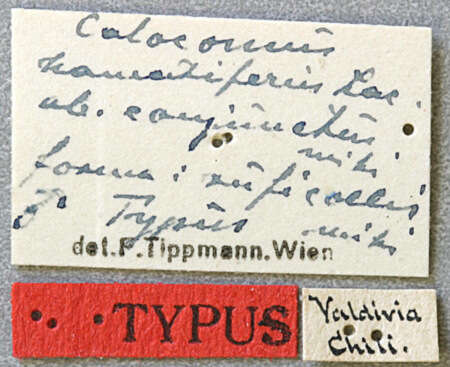 Calocomus
hamatiferus Lac.
ab. conjunctus
mihi
forma: ruficollis
Typus mihi
det.F.Tippmann.Wien
TYPUS
Valdivia
Chili.